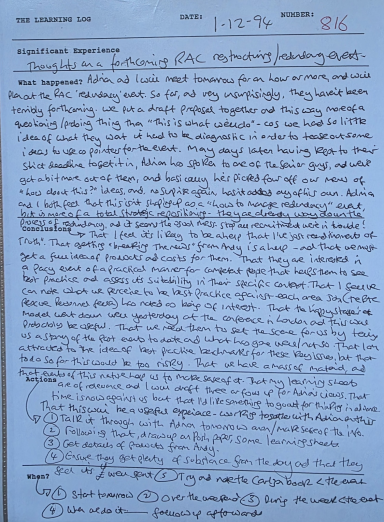 THE LEARNING LOG DATE: 1-12-94 NUMBER: 816
Significant Experience
Thoughts on a forthcoming RAC restructuring/redundancy event
What happened? Adrian and I will meet tomorrow for an hour or more, and will
plan out the RAC 'redundancy' event. So far, and very unsurprisingly, they haven't been
terribly forthcoming. We put a draft proposal together and this was more of a
questioning/probing thing than "This is what we'll do" - cos we had so little
idea of what they want it had to be diagnostic in order to tease out some
ideas to use as pointers for the event. Many days later having kept to their
strict deadline to get it in, Adrian has spoken to one of the senior guys, and we've
got a bit more out of them, and basically he's picked four off our menu of
"how about this?" ideas, and, no surprise again, hasn't added any of his own. Adrian
and I both feel that this isn't shaping up as a "how to manage redundancy" event,
but is more of a total strategic repositioning - they are already way down the
process of redundancy, and it seems the usual mess
Conclusions That I feel it is likely to be
Truth". That getting "breaking the news" from Andy is a help - and that we must
get a full idea of products and costs for them. That they are interested in
a pacy event of a practical manner for competent people that helps them to see
best practice and assess its suitability in their specific context. That I see if we
can note what we perceive to be best practice against each area
has noted as ideas of interest. That the
model went down well yesterday at the conference in London and this would
probably be useful. That we need them to set the scene for us by telling
us a story of the past events to date and what has gone well/not so. That I am
attracted to the idea of best practice benchmarks for these key issues, but that
to do so for this would be too risky. That we have a mass of material, and
that events of this nature help us to make sense of it. That my learning sheets
Actions are of relevance and I will draft three or four up for Adrian's views. That
time is now against us but that I'd like something to go out for this pre in advance.
That this will be a useful experience - working together with Adrian
① Talk it through with Adrian tomorrow
② Following that, draw up on posh paper, some learning sheets
③ Get details of products from Andy.
④ Ensure they get plenty of substance from the day and that they
feel its £ well spent ⑤ Try and note the
When?
① Start tomorrow ② Over the weekend ③ During the week
④ When we do it — follow up afterwards